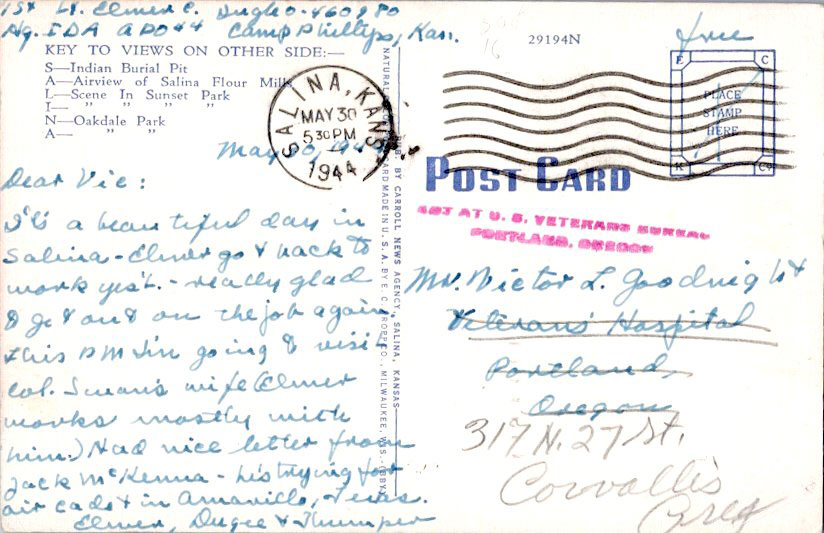 1st Lt. Elmer C. Dugko-460980
Hq. IDA APO 44 Camp Phillips, Kan.
KEY TO VIEWS ON OTHER SIDE:—
S—Indian Burial Pit
A—Airview of Salina Flour Mills
L—Scene In Sunset Park
I— " " " "
N—Oakdale Park
A— " "
29194N
free
PLACE
STAMP
HERE
E C
K Co
SALINA, KANS.
MAY 30
5 30 PM
1944
POST CARD
AT U. S. VETERANS BUREAU
PORTLAND, OREGON
May 30, 1944
Dear Vic:
It's a beautiful day in
Salina - Elmer go t back to
work yest. - really glad
to get out on the job again.
this PM I'm going to visit
Col. wife (Elmer
works mostly with
him.) Had nice letter from
Jack McKenna - he's trying for
air cadet in Amarillo, Texas.
Elmer, Dugee & Thumper
BY CARROLL NEWS AGENCY, SALINA, KANSAS
CARD MADE IN U. S. A. BY E. C. KROPP CO., MILWAUKEE, WIS.
Mr. Victor L. Goodnight
Veterans Hospital
Portland,
Oregon
317 N. 27 St.
Corvallis
Oreg